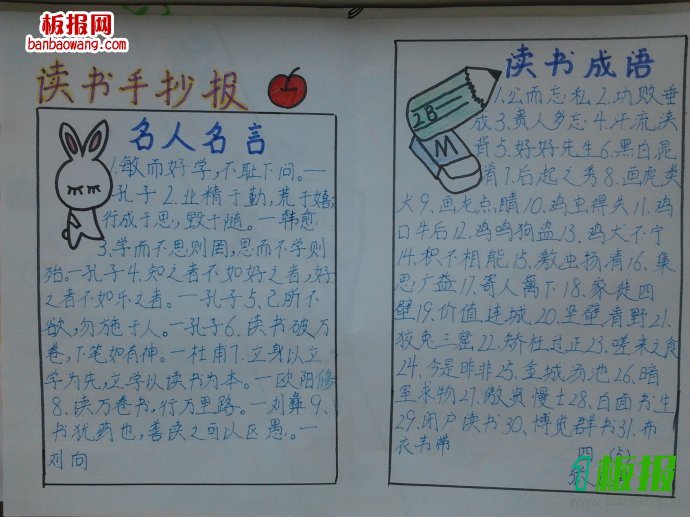 板报网
banbaowang.com
读书手抄报
名人名言
1.敏而好学,不耻下问。一
孔子2.业精于勤,荒于嬉;
行成于思,毁于随。一韩愈
3.学而不思则罔,思而不学则
殆。一孔子4.知之者不如好之者,好
之者不如乐之者。一孔子5.己所不
欲,勿施于人。一孔子6.读书破万
卷,下笔如有神。一杜甫7.立身以立
学为先,立学以读书为本。一欧阳修
8.读万卷书,行万里路。一刘彝9、
书犹药也,善读之可以医愚。一
刘向
读书成语
28
M
1.公而忘私2.功败垂
成3.贵人多忘4.汗流浃
背5.好好先生6.黑白混
淆7.后起之秀8.画虎类
犬9.画龙点睛10.鸡虫得失11.鸡
口牛后12.鸡鸣狗盗13.鸡犬不宁
14.积不相能15.激浊扬清16.集
思广益17.寄人篱下18.家徒四
壁19.价值连城20.坚壁清野21.
狡兔三窟22.矫枉过正23.嗟来之食
24.今是昨非25.金城汤池26.暗
室求物27.傲贤慢士28.白面书生
29.闭户读书30.博览群书31.布
衣韦带
四(5)
板报